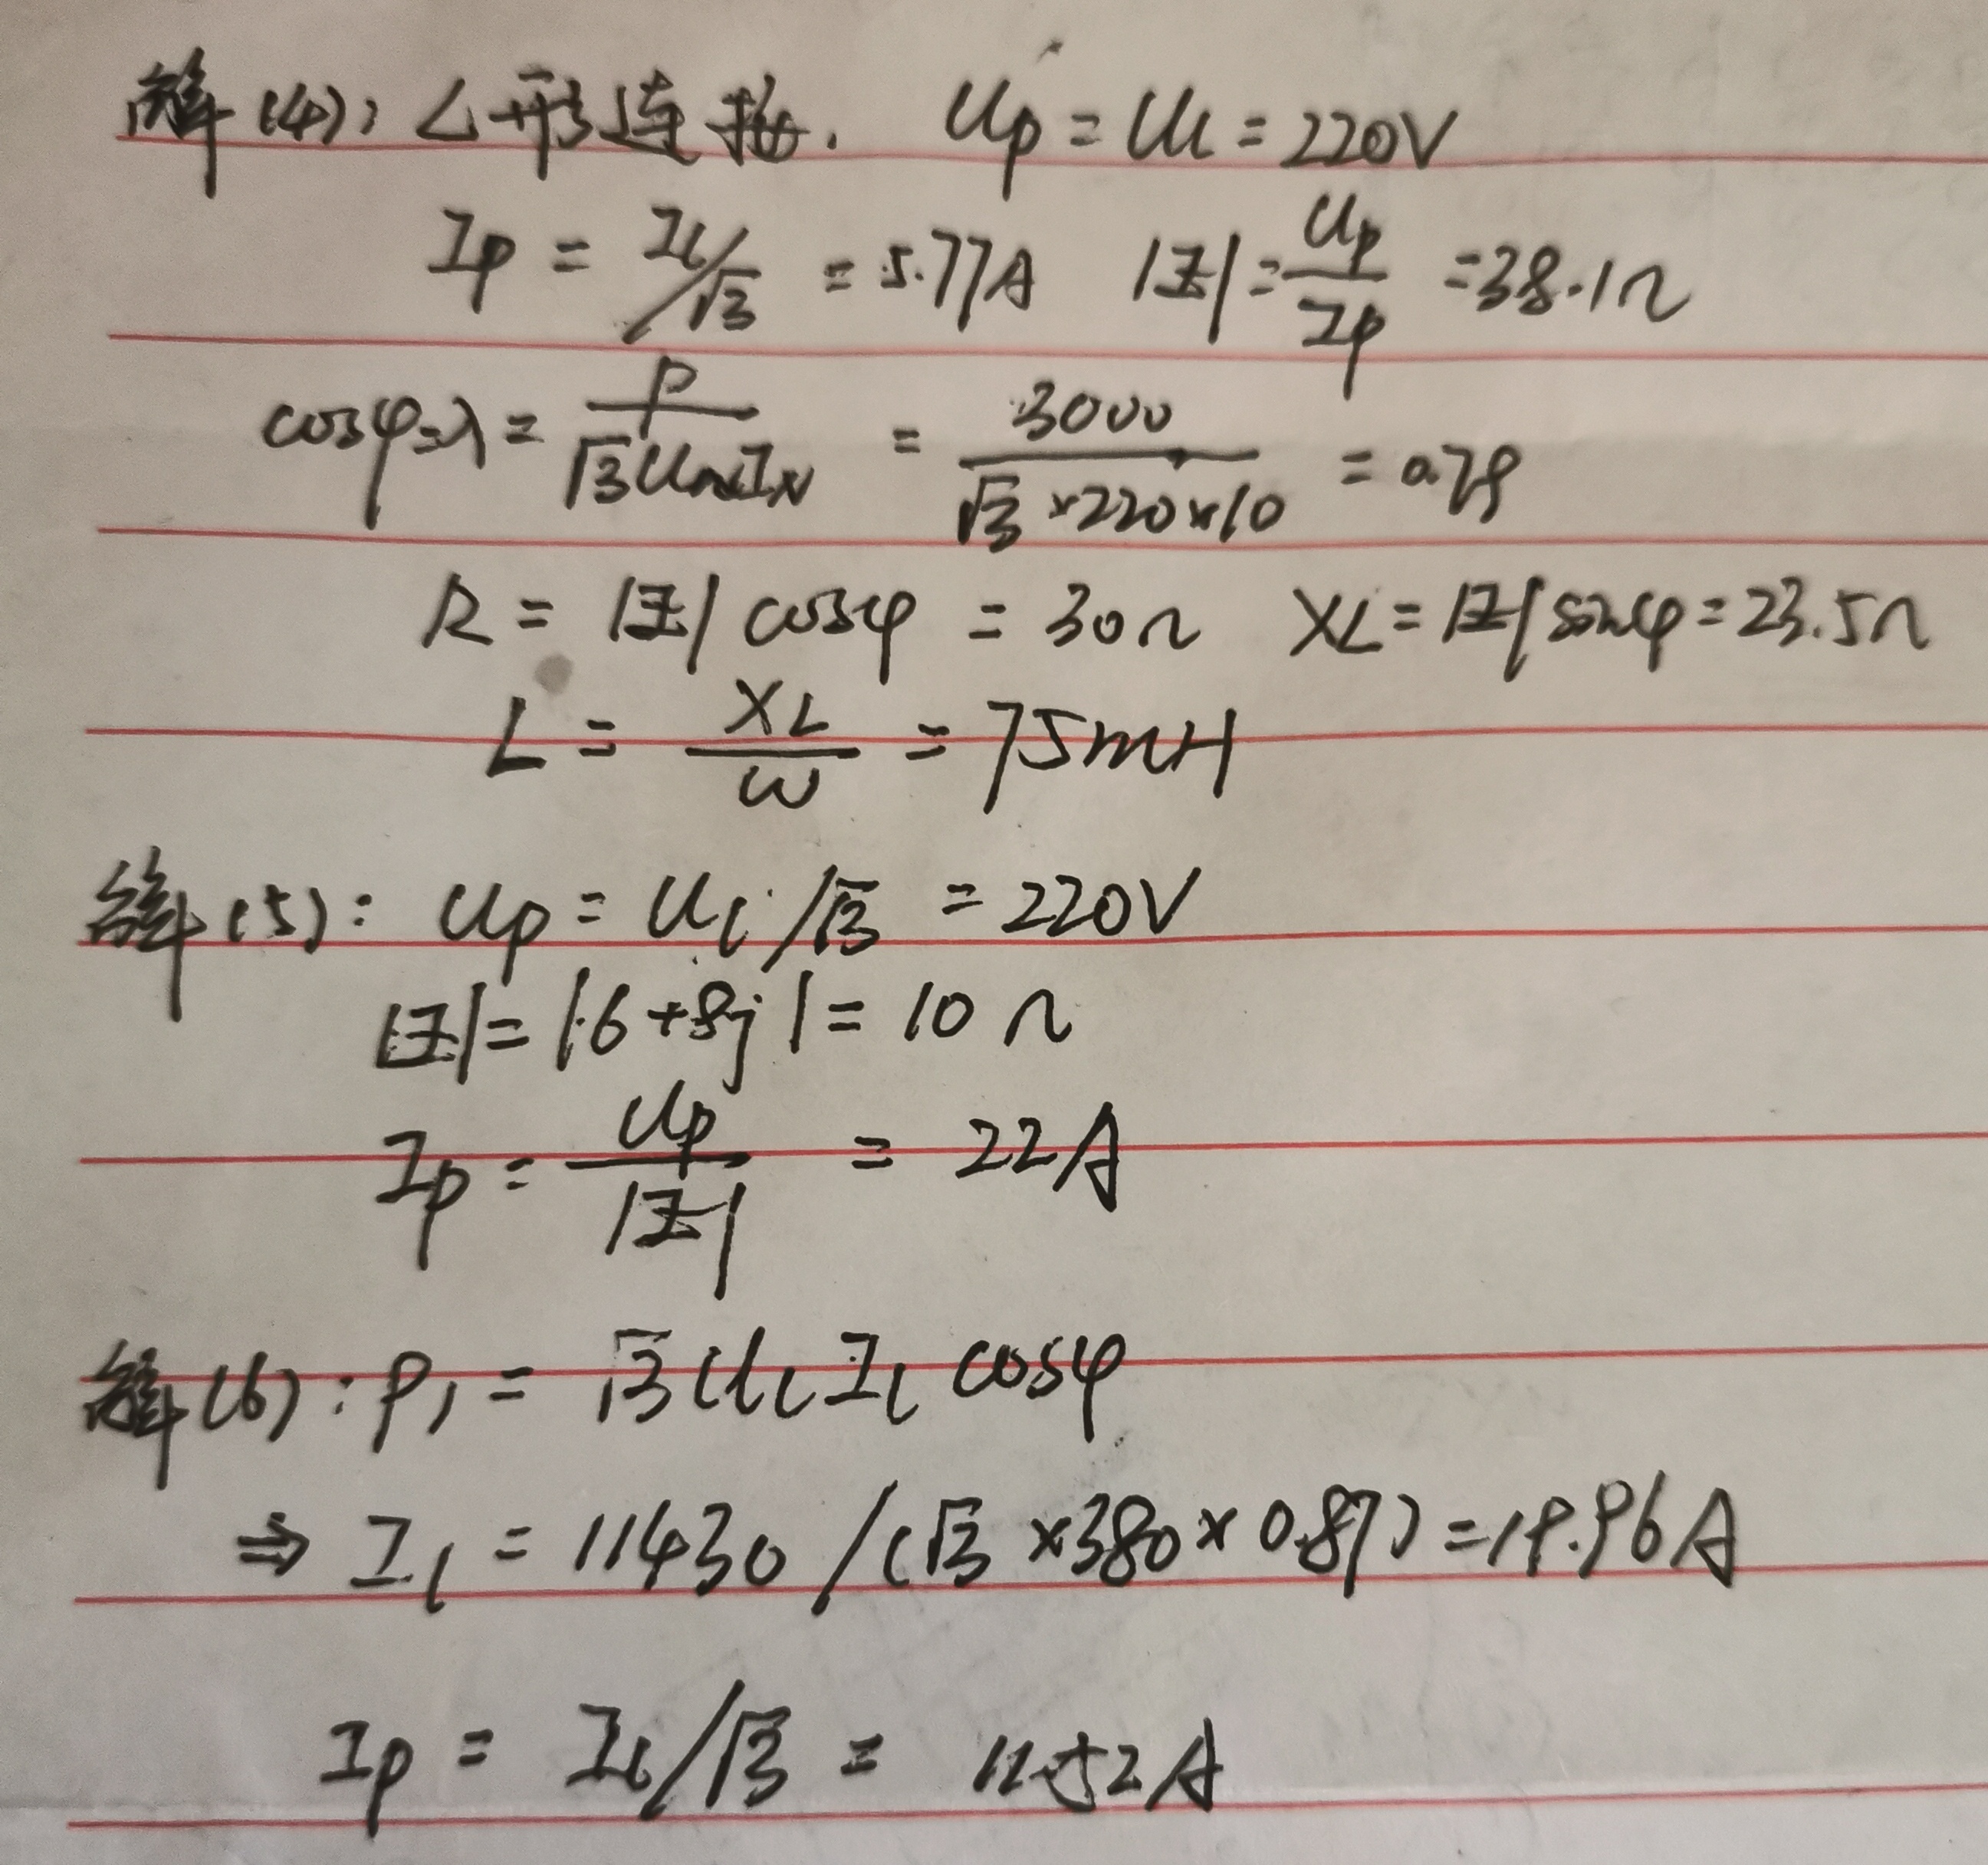 解(4): △形连接. Up = Ul = 220V
Ip = Il/√3 = 5.77A |Z| = Up/Ip = 38.1Ω
cosφ=λ = P/(√3UNIN) = 3000/(√3×220×10) = 0.79
R = |Z| cosφ = 30Ω XL = |Z| sinφ = 23.5Ω
L = XL/ω = 75mH
解(5): Up = Ul/√3 = 220V
|Z| = |6+8j| = 10Ω
Ip = Up/|Z| = 22A
解(6): P1 = √3UlIl cosφ
⇒ Il = 11430/(√3×380×0.87) = 19.96A
Ip = Il/√3 = 11.52A